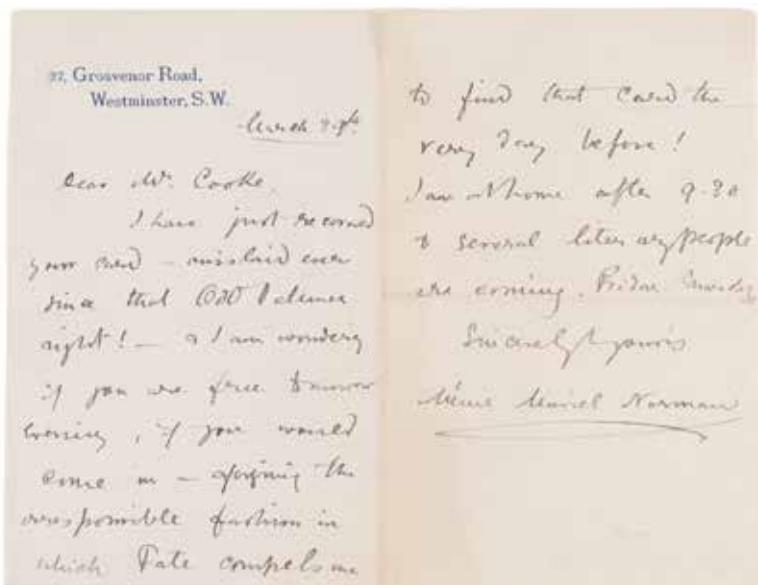 27, Grosvenor Road,
Westminster, S.W.
March
Dear Mr. Cooke,
I have just recovered
your card – mislaid ever
since that Odd Volumes
night! – & I am wondering
if you are free tomorrow
evening, if you would
come in – forgiving the
irresponsible fashion in
which Fate compels me
to find that card the
very day before!
I am at home after 9.30
& several literary people
are coming.
Sincerely yours
Ménie Muriel Norman